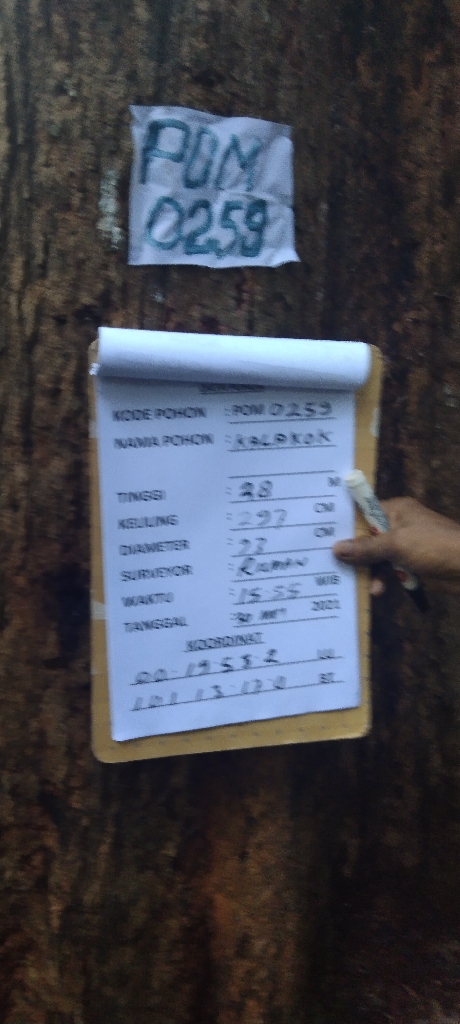 PBM
0259
KODE POHON : POM 0259
NAMA POHON : KALAKOK
TINGGI : 28 M
KELILING : 297 CM
DIAMETER : 97 CM
SURVEYOR :
WAKTU : 15:55 WIB
TANGGAL : 30 2021
KOORDINAT
00:19:58.2 LU
101 13:17.0 BT